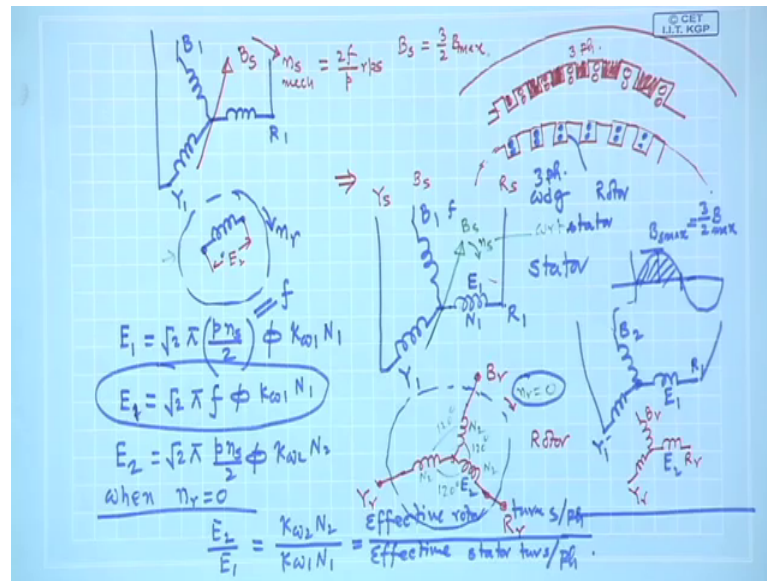 © CET
I.I.T. KGP
B1
Bs
ns mech = 2f/p rps
Bs = 3/2 Bmax.
3 ph.
R1
Y1
⇒
Ys
Bs
Rs
3 ph.
wdg
Rotor
nr
E2
B1
f
Bs
ns
wrt stator
Stator
E1
N1
R1
Y1
Bsmax = 3/2 Bmax
E1 = √2 π (pns/2) φ Kω1 N1
f
E1 = √2 π f φ Kω1 N1
E2 = √2 π pns/2 φ Kω2 N2
when nr = 0
Br
nr = 0
N2
120°
120°
120°
Rotor
N2
N2
E2
Yr
Rr
B2
R1
E1
Y1
Br
E2
Rr
Yr
E2/E1 = Kω2 N2/Kω1 N1 = Effective rotor turns/ph/Effective stator turs/ph.